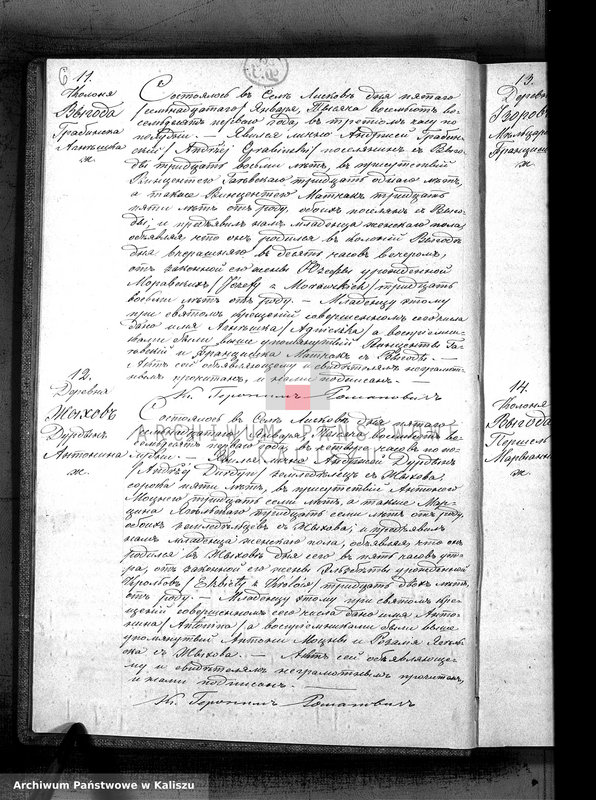 6
11.
Колонія
Выгода
Грабинска
Агнѣшка
ж
Состоялось въ Селѣ Лисковѣ дня пятаго
/семнадцатаго/ Января, Тысяча восемьсотъ во-
семьдесятъ перваго года, въ третьемъ часу по
полудни. — Явился лично Андржей Грабин-
скій /Andrzej Grabiński/ поселянинъ съ Выго-
ды тридцать восемь лѣтъ, въ присутствіи
Винцентего тридцать одного лѣтъ,
а также Винцентего Матчакъ тридцать
пяти лѣтъ отъ роду, обоихъ поселянъ съ Выго-
ды, и предъявилъ намъ младенца женскаго пола,
объявляя что онъ родился въ колоніи Выгодѣ
дня вчерашняго въ десять часовъ вечеромъ,
отъ законной его жены Юзефы урожденной
/Józefy z / тридцать
восемь лѣтъ отъ роду. — Младенцу этому
при святомъ крещеніи совершенномъ сего числа
дано имя Агнѣшка /Agnieszka/ а воспріемни-
ками были выше упомянутый Винцентій
и Францишка Матчакъ съ Выгоды. —
Актъ сей объявляющему и свидѣтелямъ неграмот-
нымъ прочитанъ, и нами подписанъ. —
Кс. Геронимъ Романовичъ
12.
Деревня
Жыховъ
Дурдынъ
Антонина
ж.
Состоялось въ Селѣ Лисковѣ дня пятаго
/семнадцатаго/ Января, Тысяча восемьсотъ во-
семьдесятъ перваго года, въ четверть часовъ по по-
лудни. — Явился лично Андржей Дурдынъ
/Andrzej Durdyn/ изъ Жыхова,
сорока пяти лѣтъ, въ присутствіи Антонего
Моцнего /тридцать семи лѣтъ, а также Мар-
цина тридцать семи лѣтъ отъ роду,
обоихъ съ Жыхова; и предъявилъ
намъ младенца женскаго пола, объявляя что онъ
родился въ Жыховѣ дня сего въ пять часовъ ут-
ра, отъ законной его жены Эльжбѣты урожденной
/Elżbiety z / тридцать двохъ лѣтъ
отъ роду. — Младенцу этому при святомъ кре-
щеніи совершенномъ сего числа дано имя Анто-
нина /Antonina/ а воспріемниками были выше
упомянутый Антони Моцны и Розалія
съ Жыхова. — Актъ сей объявляюще-
му и свидѣтелямъ неграмотнымъ прочитанъ,
и нами подписанъ. —
Кс. Геронимъ Романовичъ
13.
Деревн
14.
Колонія
Выгода
Марыанна
ж
ARCHIWUM PAŃSTWOWE
W KALISZU
Archiwum Państwowe w Kaliszu